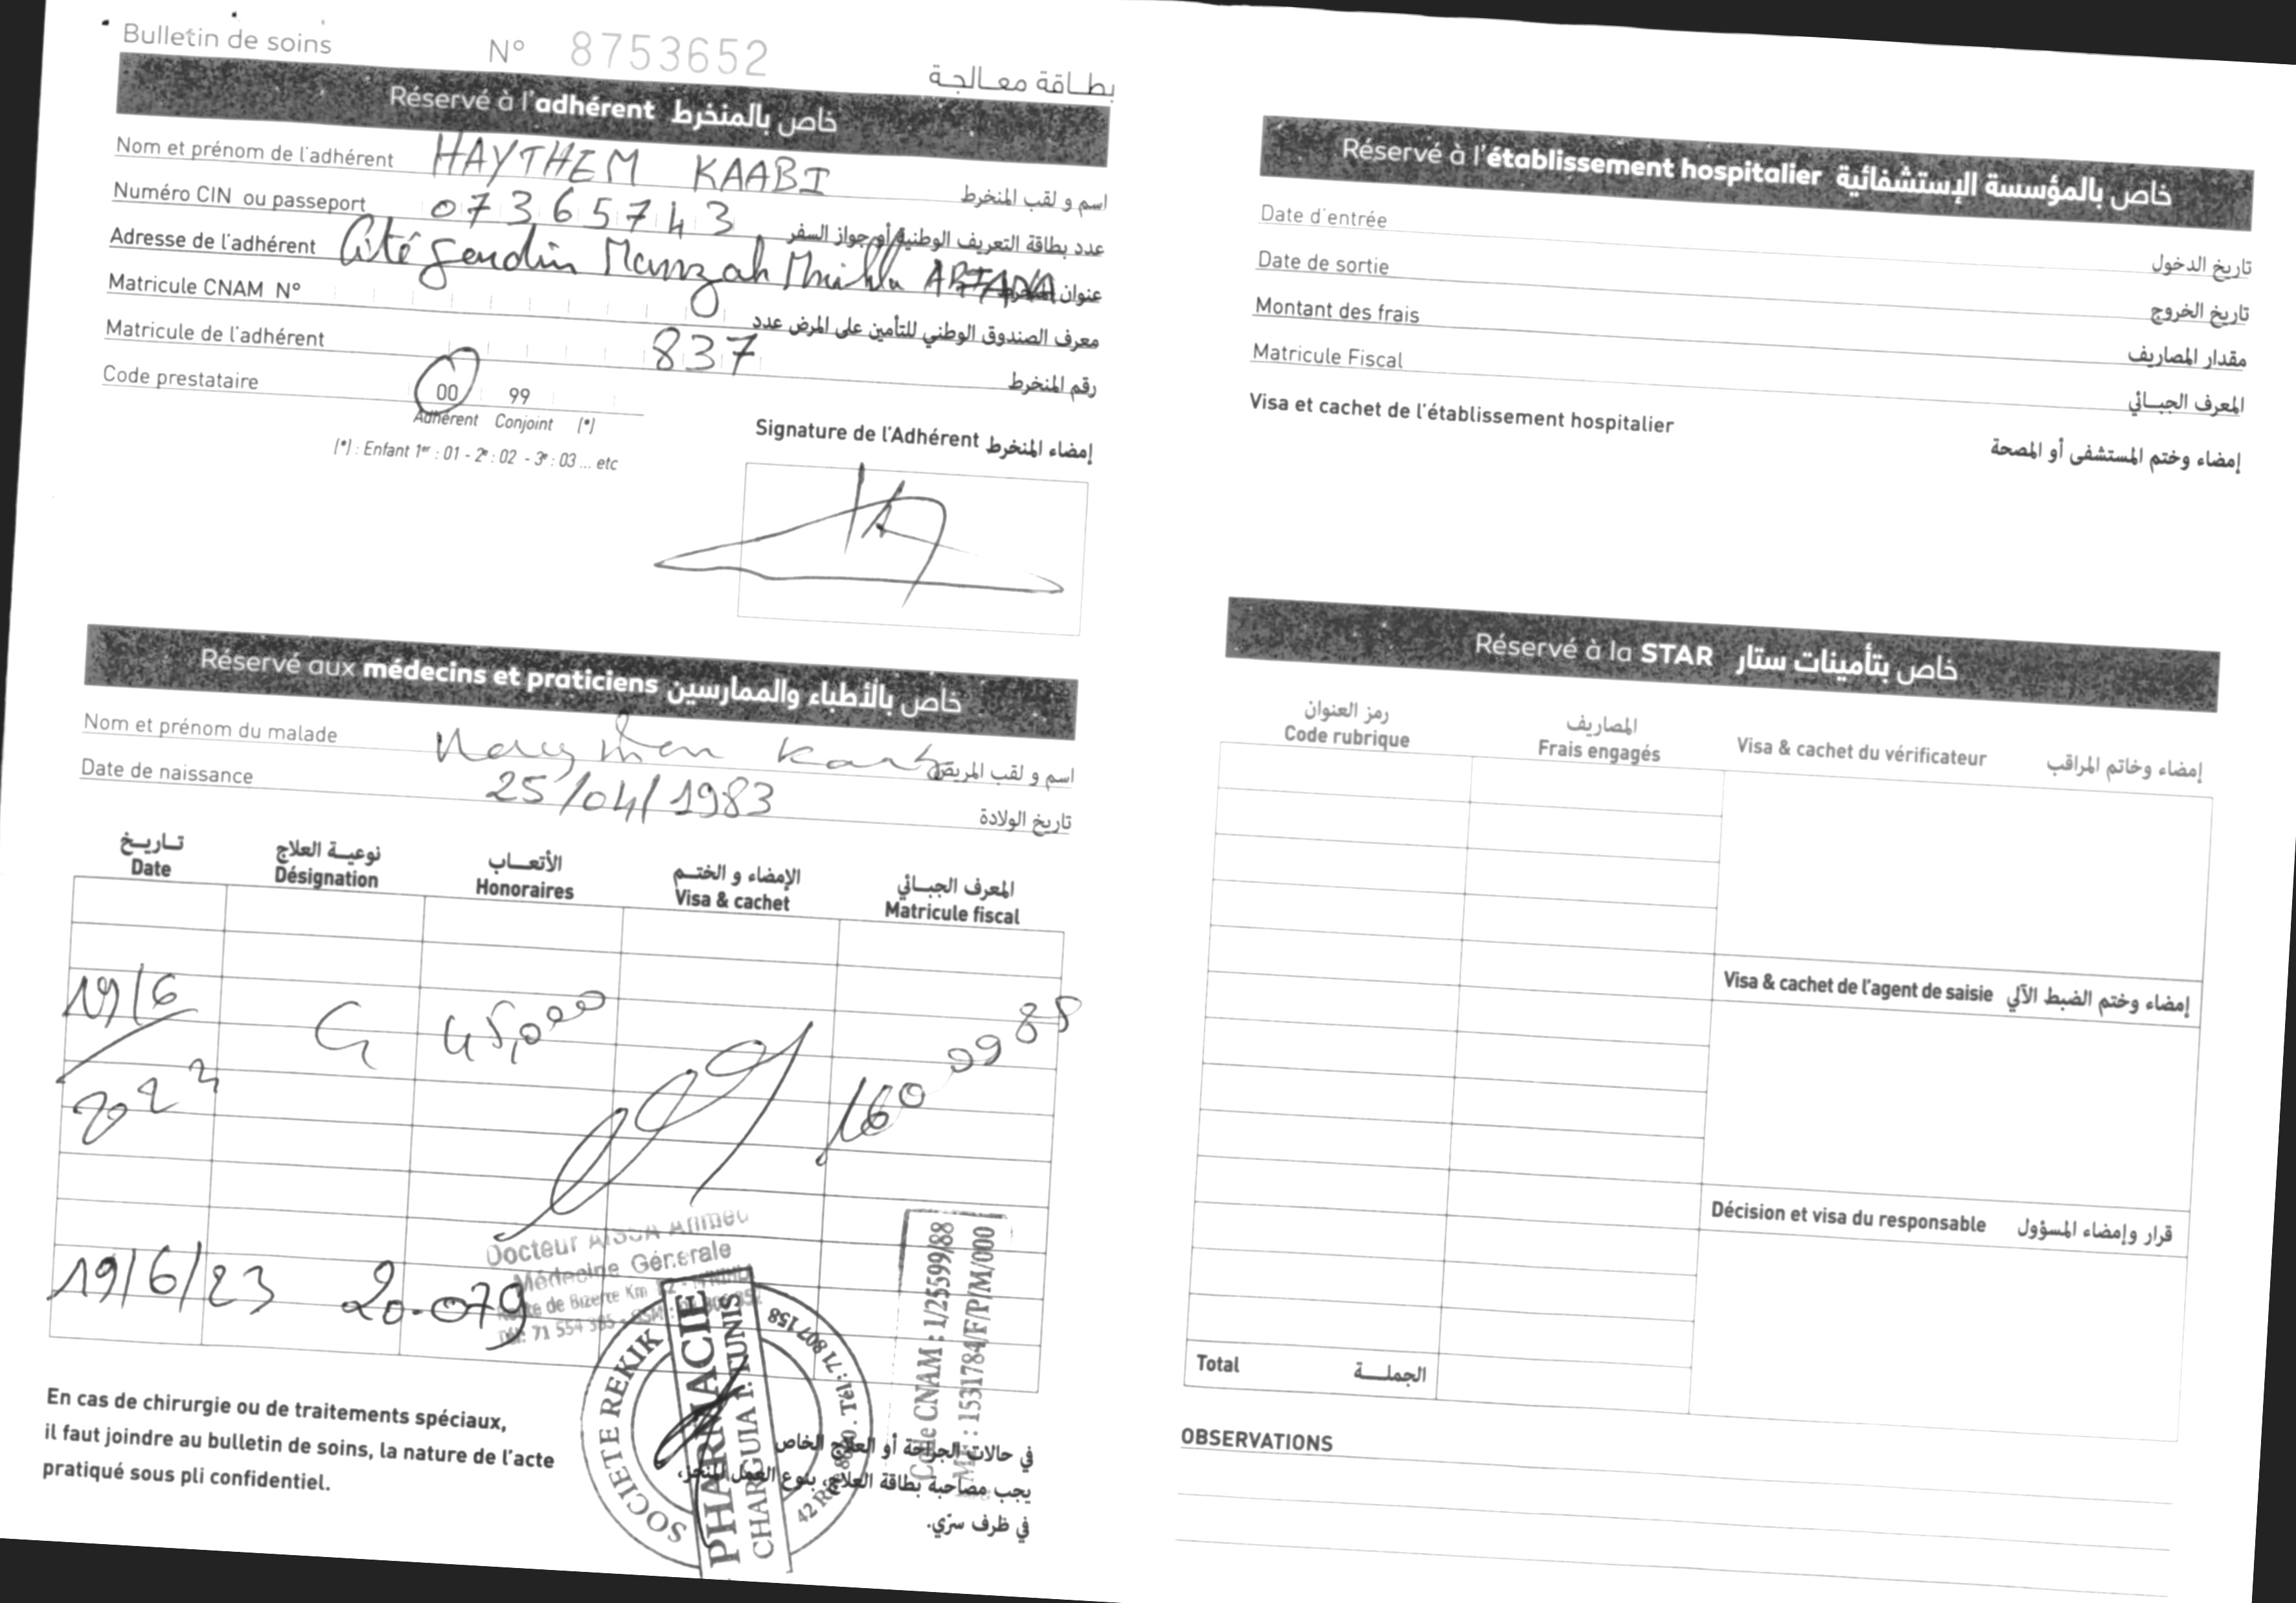 Bulletin de soins N° 8753652 بطاقة معالجة
Réservé à l'adhérent خاص بالمنخرط
Nom et prénom de l'adhérent HAYTHEM KAABI اسم و لقب المنخرط
Numéro CIN ou passeport 07365743 عدد بطاقة التعريف الوطنية أو جواز السفر
Adresse de l'adhérent Cité Jardin Manzah ARIANA عنوان المنخرط
Matricule CNAM N° معرف الصندوق الوطني للتأمين على المرض عدد
Matricule de l'adhérent 837 رقم المنخرط
Code prestataire 00 99
Adhérent Conjoint (*)
(*) : Enfant 1er : 01 - 2e : 02 - 3e : 03 ... etc
Signature de l'Adhérent إمضاء المنخرط
Réservé aux médecins et praticiens خاص بالأطباء والممارسين
Nom et prénom du malade اسم و لقب المريض
Date de naissance 25/04/1983 تاريخ الولادة
تاريخ نوعية العلاج الأتعاب الإمضاء و الختم المعرف الجبائي
Date Désignation Honoraires Visa & cachet Matricule fiscal
19/6 45,000
2023
Docteur AISSA Ahmed
Médecine Générale
19/6/23 20.079
SOCIETE REKIK
PHARMACIE
CHARGUIA I. TUNIS
Tél : 71 807 158
Code CNAM : 1/25599/88
1531784/F/P/M/000
En cas de chirurgie ou de traitements spéciaux,
il faut joindre au bulletin de soins, la nature de l'acte
pratiqué sous pli confidentiel.
في حالات الجراحة أو العلاج الخاص
يجب مصاحبة بطاقة العلاج، بنوع العمل المنجز،
في ظرف سرّي.
Réservé à l'établissement hospitalier خاص بالمؤسسة الإستشفائية
Date d'entrée تاريخ الدخول
Date de sortie تاريخ الخروج
Montant des frais مقدار المصاريف
Matricule Fiscal المعرف الجبائي
Visa et cachet de l'établissement hospitalier إمضاء وختم المستشفى أو المصحة
Réservé à la STAR خاص بتأمينات ستار
رمز العنوان المصاريف
Code rubrique Frais engagés Visa & cachet du vérificateur إمضاء وخاتم المراقب
Visa & cachet de l'agent de saisie إمضاء وختم الضبط الآلي
Décision et visa du responsable قرار وإمضاء المسؤول
Total الجملة
OBSERVATIONS